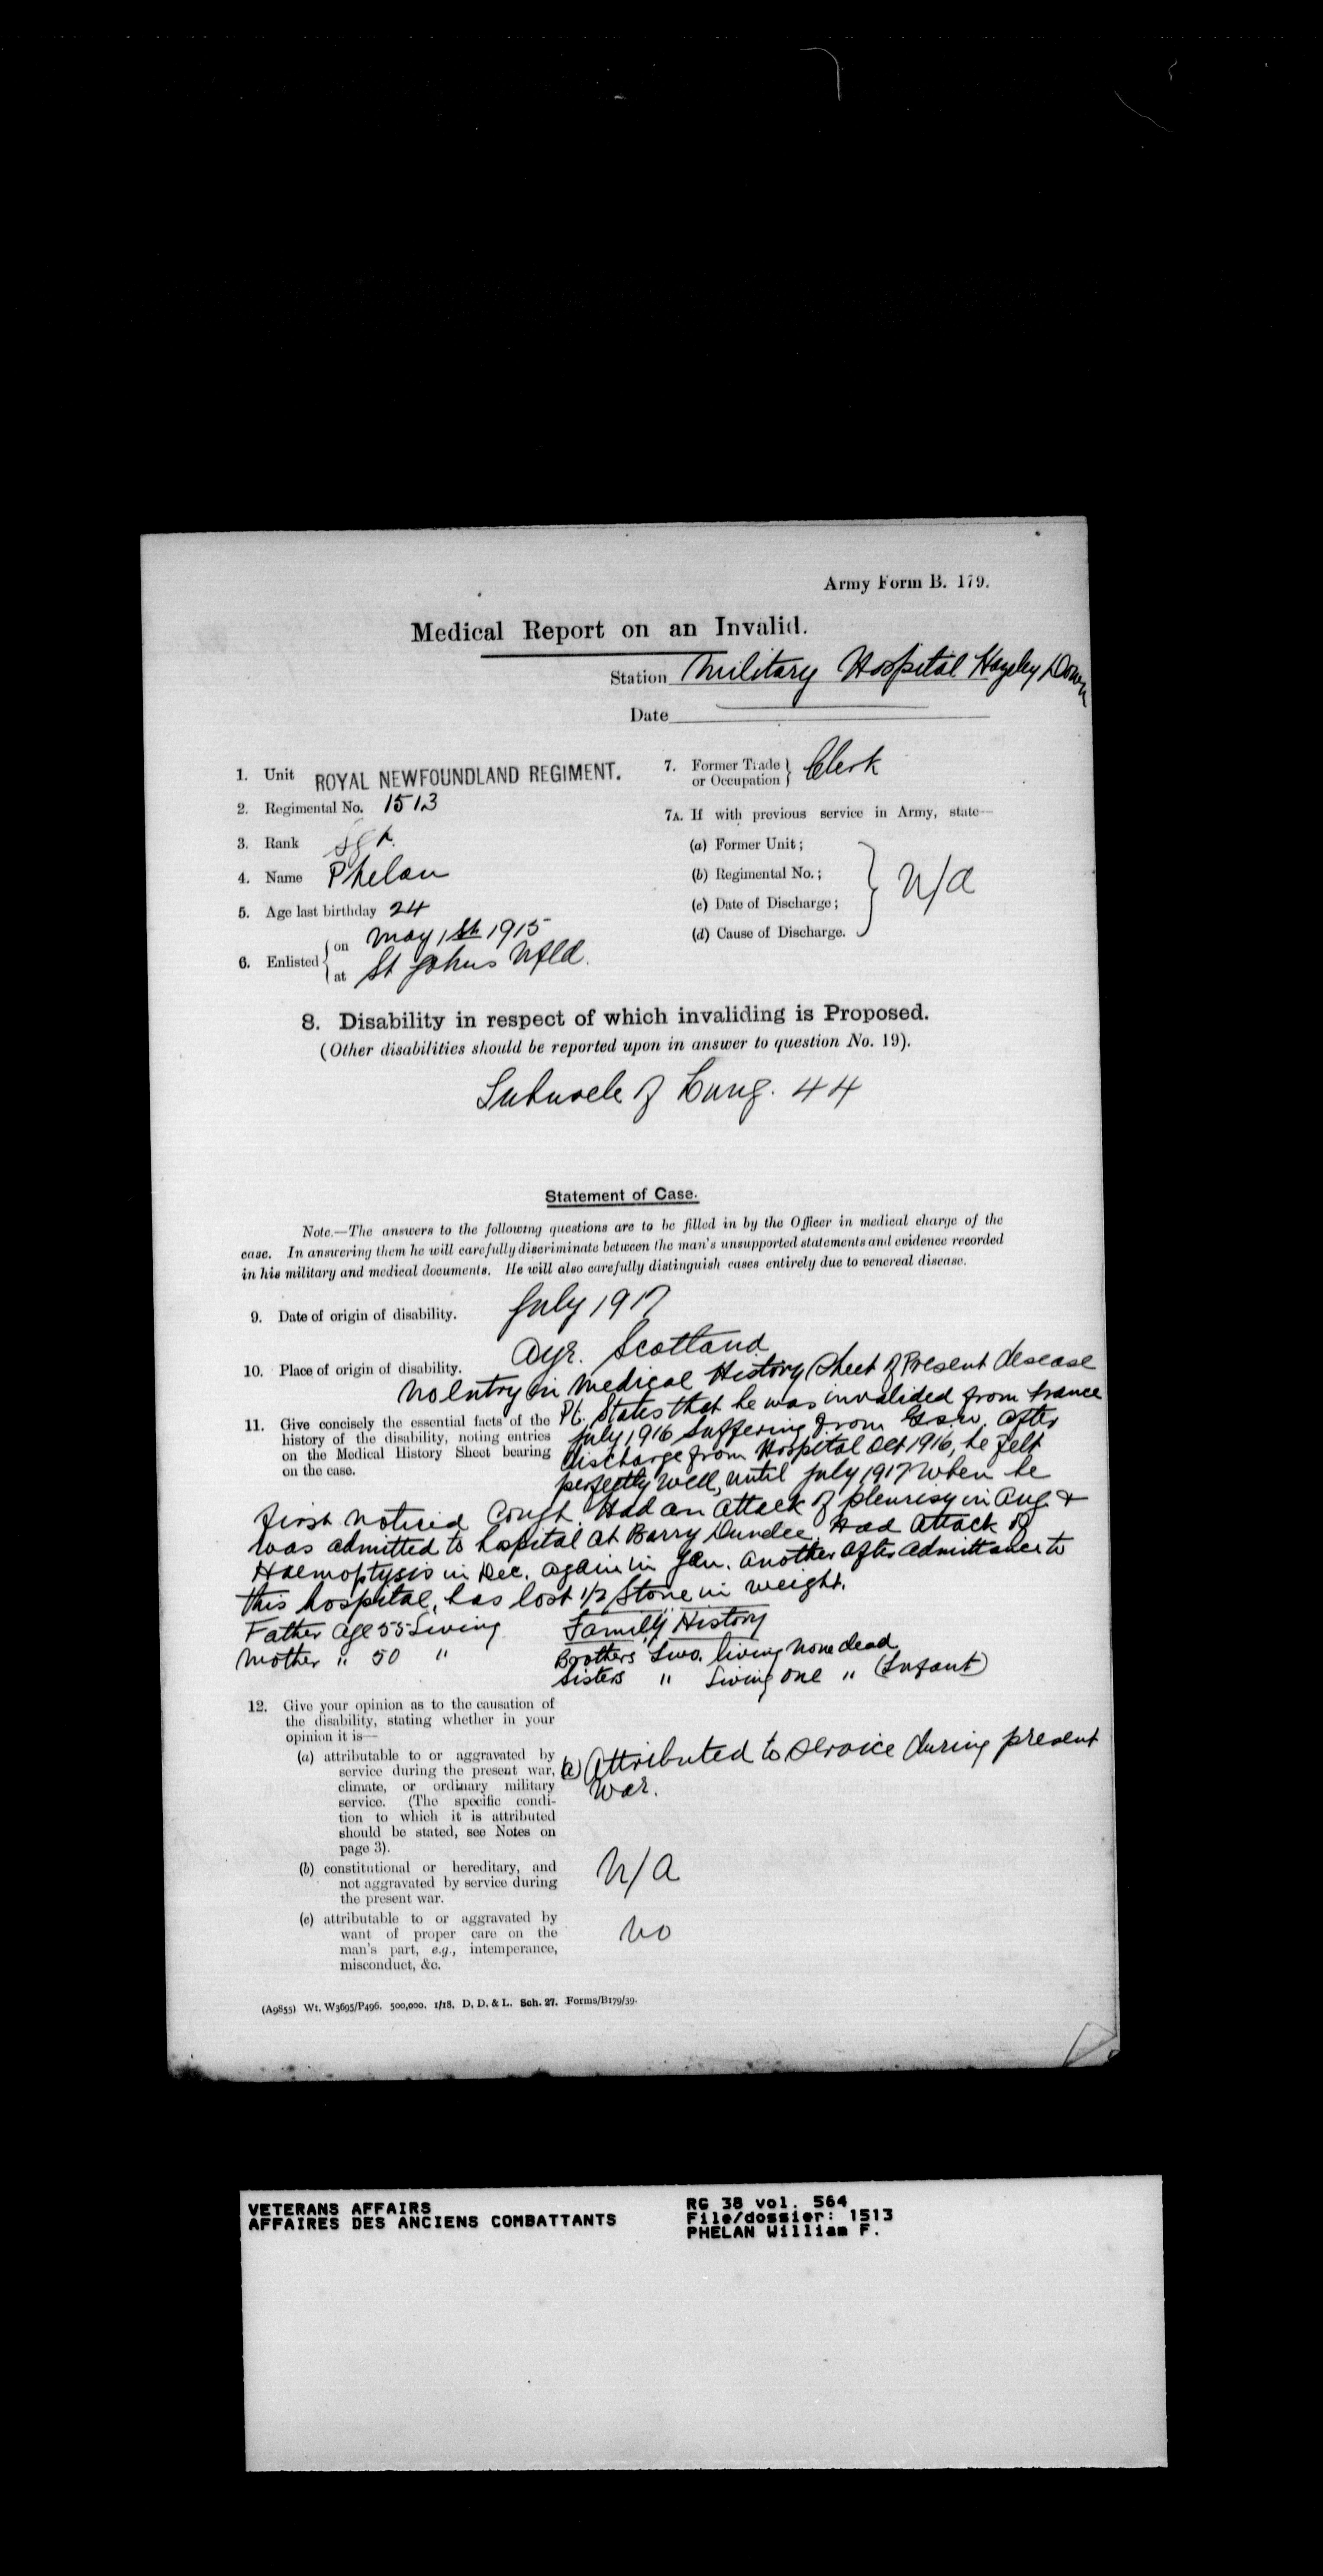 Army Form B. 179.
Medical Report on an Invalid.
Station Military Hospital Hazeley Down
Date
1. Unit ROYAL NEWFOUNDLAND REGIMENT.
2. Regimental No. 1513
3. Rank Sgt.
4. Name Phelan
5. Age last birthday 24
6. Enlisted { on May 1st 1915
at St Johns Nfld.
7. Former Trade or Occupation } Clerk
7A. If with previous service in Army, state—
(a) Former Unit;
(b) Regimental No.;
(c) Date of Discharge;
(d) Cause of Discharge.
} N/A
8. Disability in respect of which invaliding is Proposed.
(Other disabilities should be reported upon in answer to question No. 19).
Tubercle of Lung. 44
Statement of Case.
Note.—The answers to the following questions are to be filled in by the Officer in medical charge of the
case. In answering them he will carefully discriminate between the man's unsupported statements and evidence recorded
in his military and medical documents. He will also carefully distinguish cases entirely due to venereal disease.
9. Date of origin of disability. July 1917
10. Place of origin of disability. Ayr. Scotland
No entry in Medical History Sheet of Present disease
11. Give concisely the essential facts of the
history of the disability, noting entries
on the Medical History Sheet bearing
on the case.
Pt. States that he was invalided from France
July 1916 suffering from G.S.W. after
discharge from Hospital Oct 1916, he felt
perfectly well, until July 1917 when he
first noticed cough. Had an attack of pleurisy in Aug. &
was admitted to hospital at Barry Dundee. Had attack of
Haemoptysis in Dec. again in Jan. another after admittance to
this hospital, has lost 1/2 Stone in weight.
Family History
Father age 55 Living
Mother " 50 "
Brothers Two. living none dead
Sisters " Living one " (Infant)
12. Give your opinion as to the causation of
the disability, stating whether in your
opinion it is—
(a) attributable to or aggravated by
service during the present war,
climate, or ordinary military
service. (The specific condi-
tion to which it is attributed
should be stated, see Notes on
page 3).
(a) Attributed to service during present
War.
(b) constitutional or hereditary, and
not aggravated by service during
the present war.
N/A
(c) attributable to or aggravated by
want of proper care on the
man's part, e.g., intemperance,
misconduct, &c.
No
(A9855) Wt. W3695/P496. 500,000. 1/18. D. D. & L. Sch. 27. Forms/B179/39.
VETERANS AFFAIRS
AFFAIRES DES ANCIENS COMBATTANTS
RG 38 vol. 564
File/dossier: 1513
PHELAN William F.